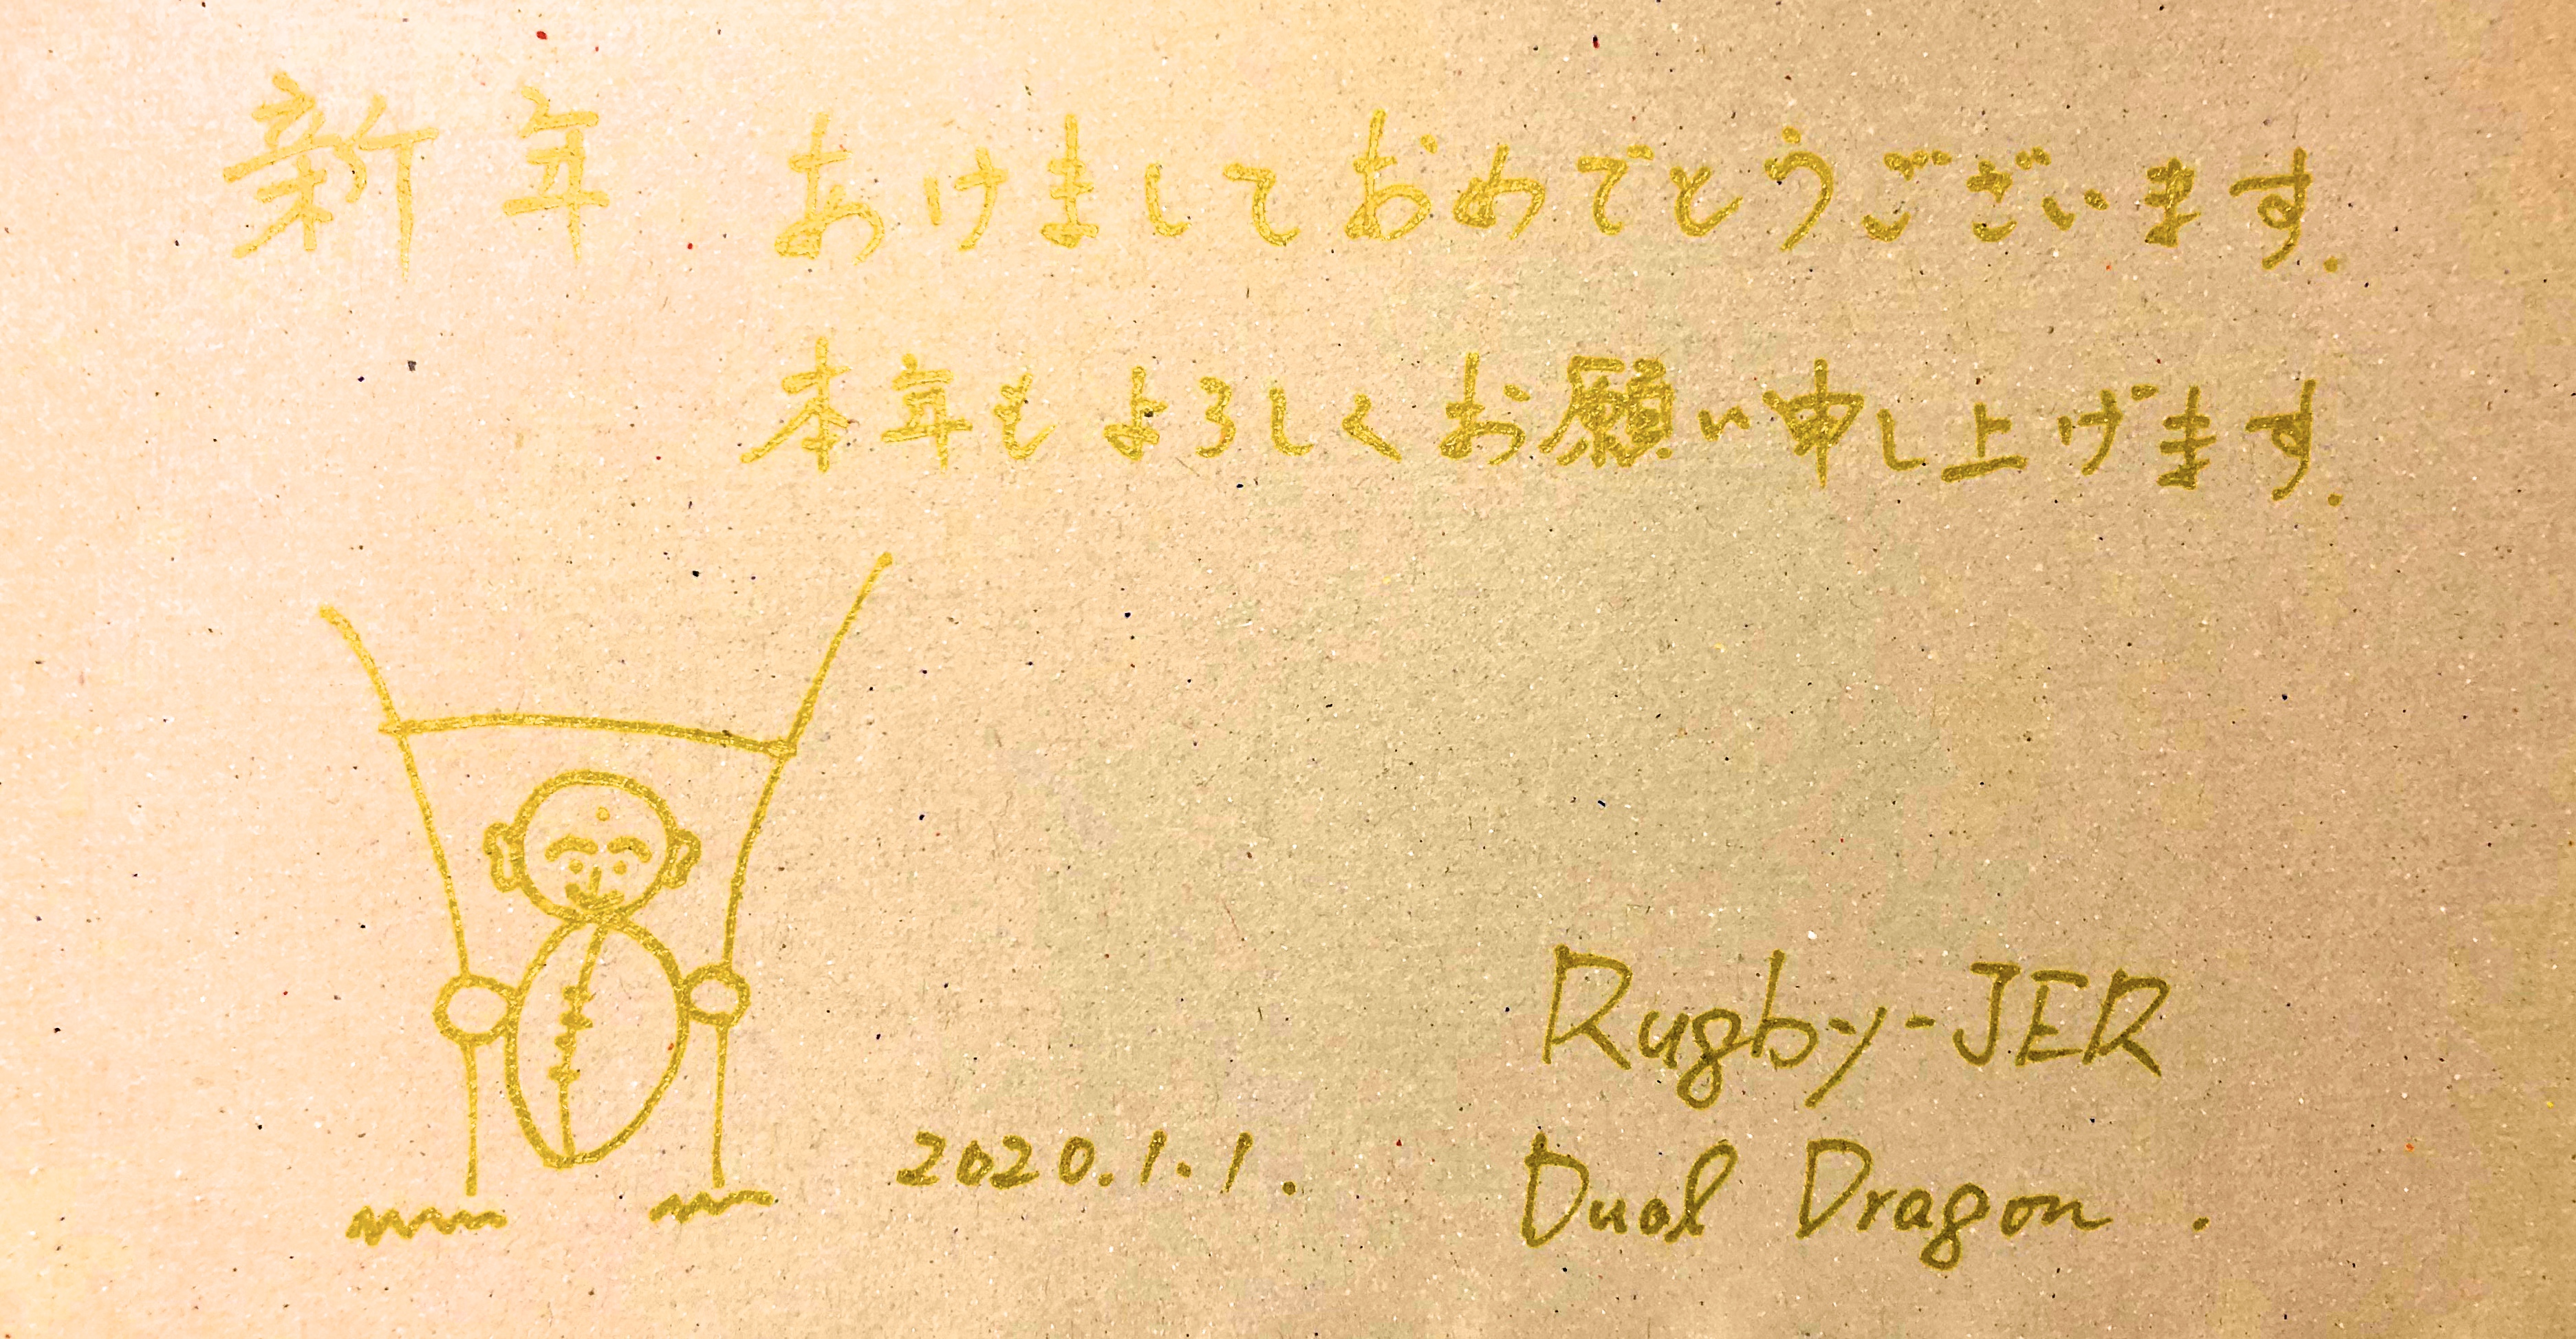 新年 あけましておめでとうございます.
本年もよろしくお願い申し上げます.
Rugby-JER
2020.1.1.
Dual Dragon.